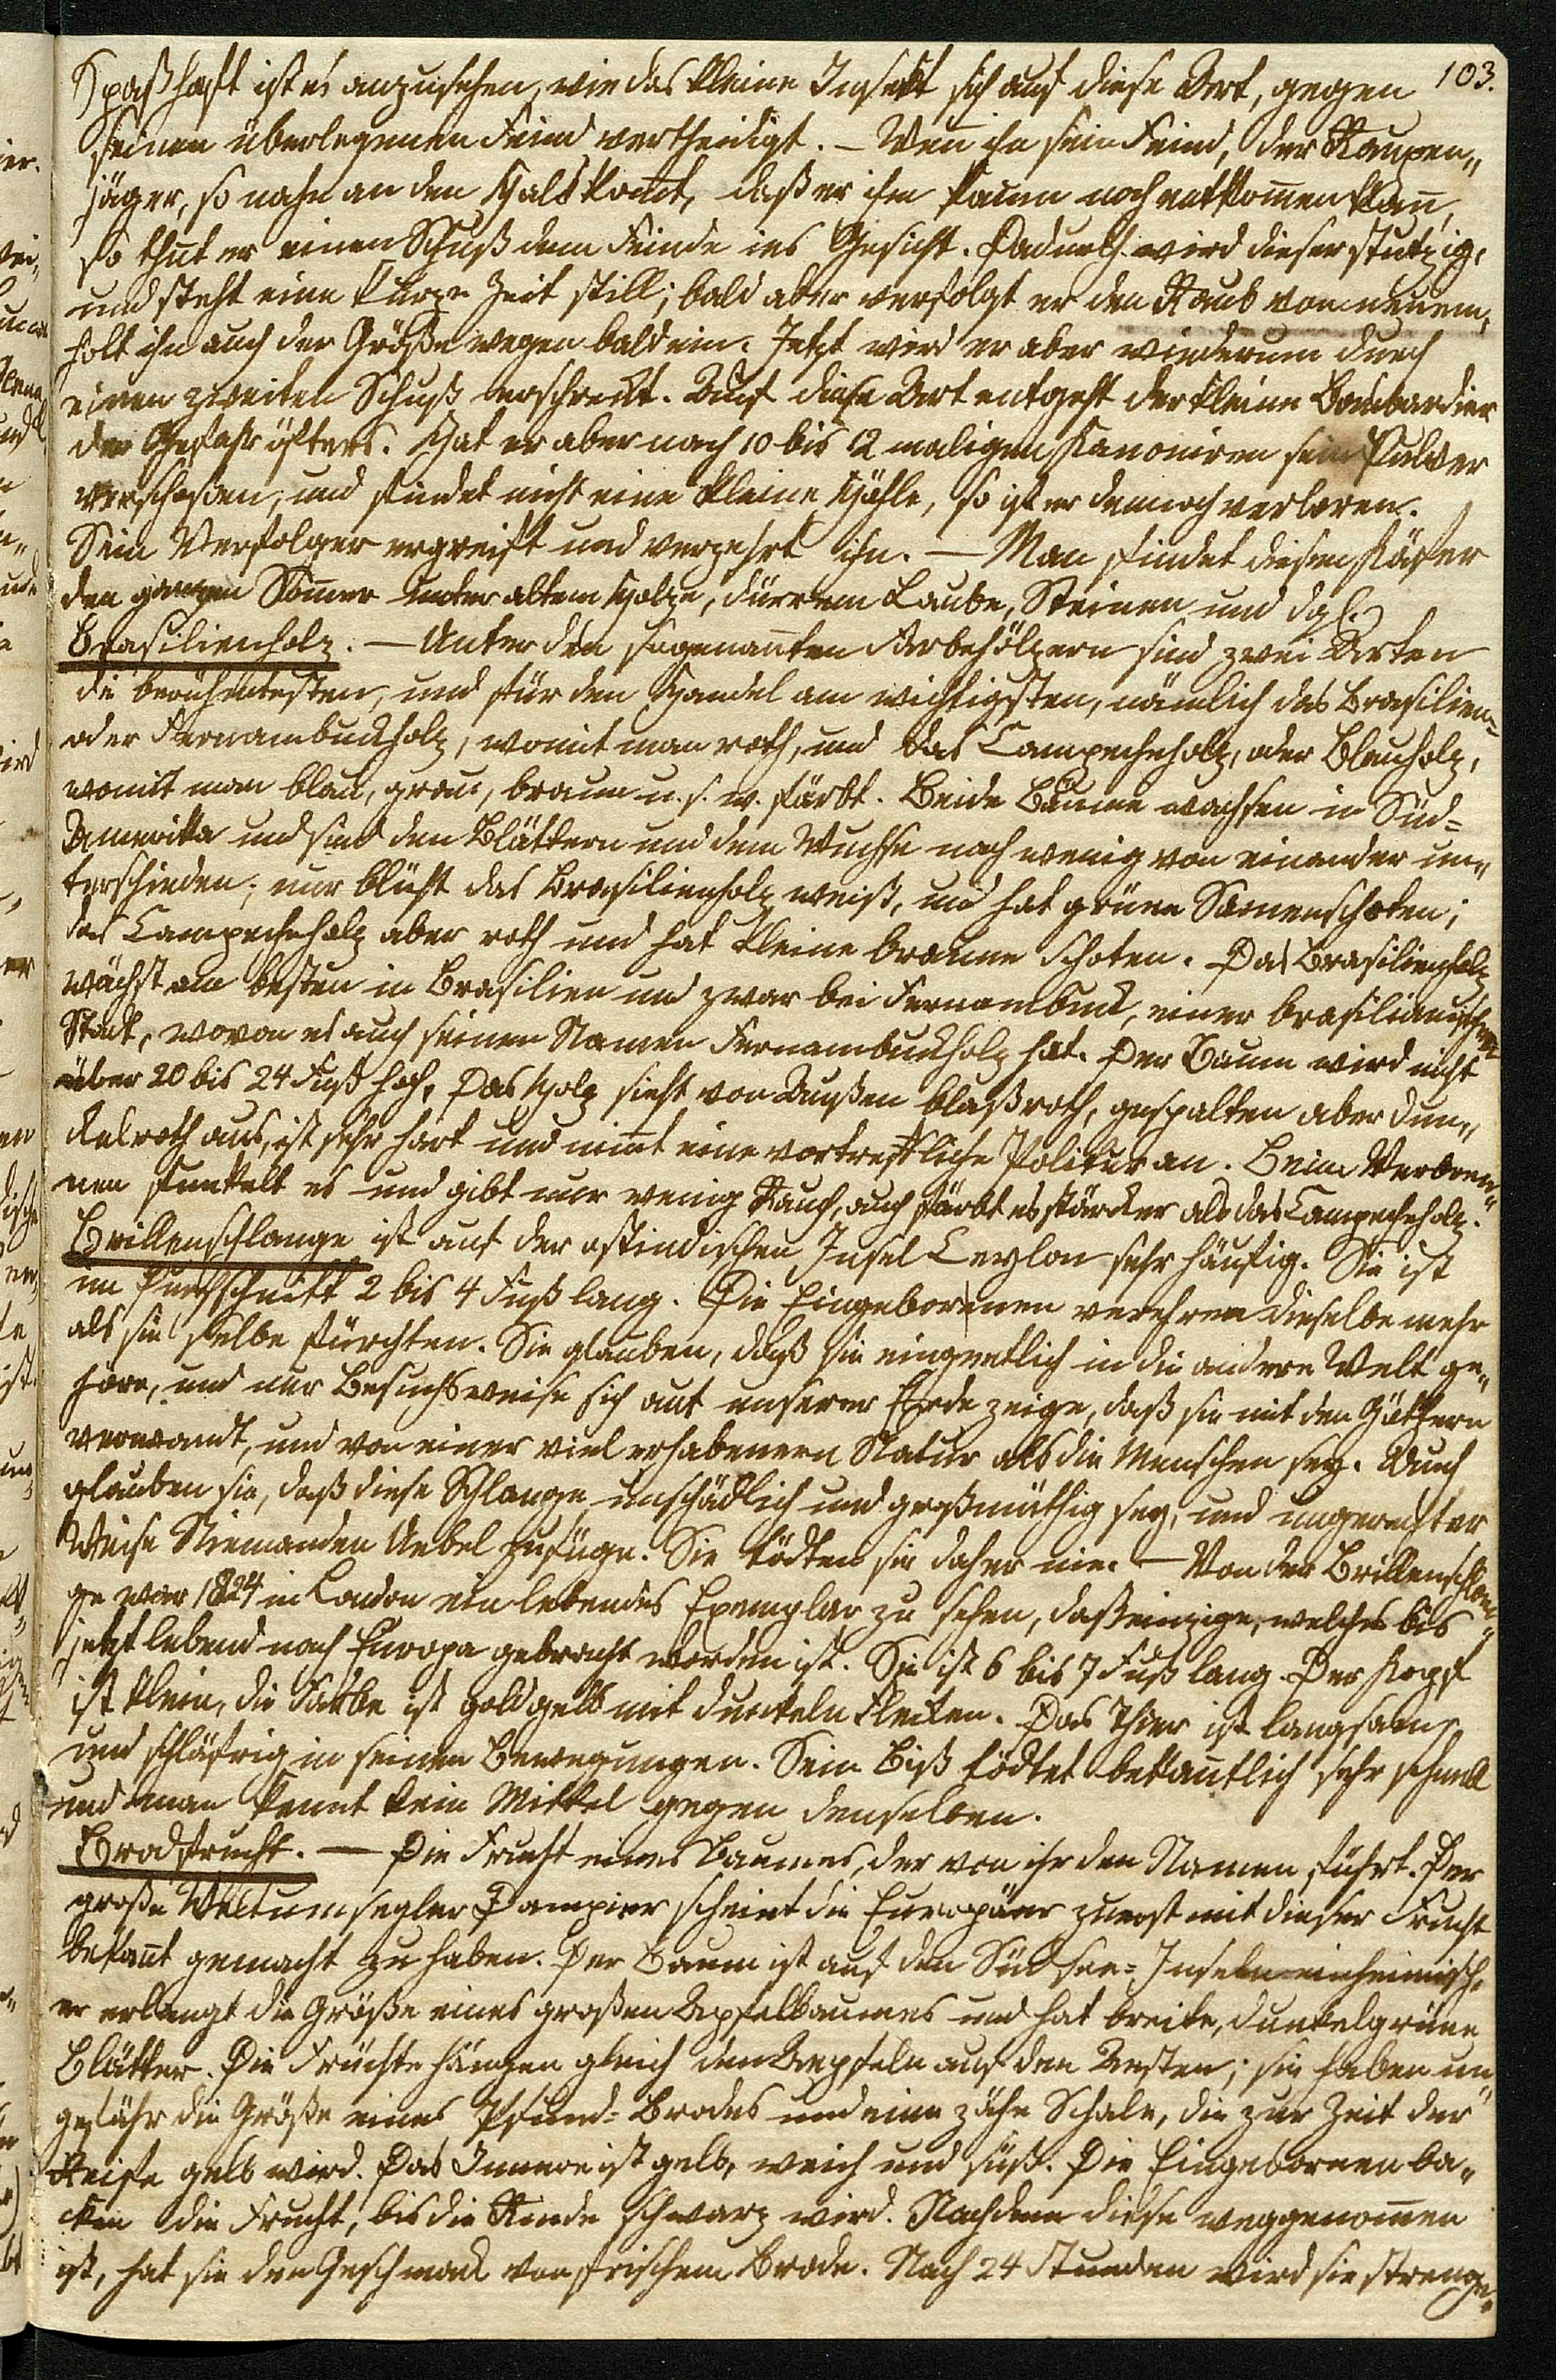 103.
Spaßhaft ist es anzusehen, wie das kleine Insekt sich auf diese Art, gegen
seinen überlegenen Feind vertheidigt. — Wen̄ ihn sein Feind, der Raupen„
jäger, so nahe an den Hals kom̄t, daß er ihm kaum noch entkom̄en kan̄,
so thut er einen Schuß dem Feinde ins Gesicht. Dadurch wird dieser stutzig,
und steht eine kurze Zeit still; bald aber verfolgt er den Raub von neuem,
holt ihn auch der Größe wegen bald ein. Jetzt wird er aber wiederum durch
einen zweiten Schuß erschreckt. Auf diese Art entgeht der kleine Bombardier
der Gefahr öfters. Hat er aber nach 10 bis 12 maligen Kanoniren sein Pulver
verschoßen, und findet nicht eine kleine Höhle, so ist er dennoch verloren.
Sein Verfolger ergreift und verzehrt ihn. — Man findet diesen Käfer
den ganzen Som̄er unter altem Holze, dürrem Laube, Steinen und dgl.
Brasilienholz. — Unter den sogenan̄ten Farbehölzern sind zwei Arten
die berühmtesten, und für den Handel am wichtigsten, nämlich das Brasilien=
oder Fernambuckholz, womit man roth, und das Campecheholz, oder Blauholz,
womit man blau, grau, braun u. s. w. färbt. Beide Bäume wachsen in Süd=
Amerika und sind den Blättern und dem Wuchse nach wenig von einander un„
terschieden; nur blüht das Brasilienholz weiß, und hat grüne Samenschoten;
das Campecheholz aber roth und hat kleine braune Schoten. Das Brasilienholz
wächst am besten in Brasilien und zwar bei Fernambuck, einer brasilianischen
Stadt, wovon es auch seinen Namen Fernambuckholz hat. Der Baum wird nicht
über 20 bis 24 Fuß hoch. Das Holz sieht von Außen blaßroth, gespalten aber dun„
kelroth aus, ist sehr hart und nim̄t eine vortreffliche Politur an. Beim Verbren„
nen funkelt es und gibt nur wenig Rauch, auch färbt es stärcker als das Campecheholz.
Brillenschlange ist auf der ostindischen Insel Ceylon sehr häufig. Sie ist
im Durchschnitt 2 bis 4 Fuß lang. Die Eingeborenen verehren dieselbe mehr
als sie selbe fürchten. Sie glauben, daß sie eingentlich in die andere Welt ge„
höre, und nur Besuchsweise sich auf unserer Erde zeige, daß sie mit den Göttern
verwandt, und von einer viel erhabenern Natur als die Menschen sey. Auch
glauben sie, daß diese Schlange unschädlich und großmüthig sey, und ungerechter
Weise Niemanden Uebel zufüge. Sie tödten sie daher nie. — Von der Brillenschlan„
ge war 1824 in London ein lebendes Exemplar zu sehen, daß einzige, welches bis
jetzt lebend nach Europa gebracht worden ist. Sie ist 6 bis 7 Fuß lang. Der Kopf
ist klein, die Farbe ist goldgelb mit dunkeln Flecken. Das Thier ist langsam
und schläfrig in seinen Bewegungen. Sein Biß tödtet bekan̄tlich sehr schnell
und man kennt kein Mittel gegen denselben.
Brodfrucht. — Die Frucht eines Baumes, der von ihr den Namen führt. Der
große Weltumsegler Dampier scheint die Europäer zuerst mit dieser Frucht
bekan̄t gemacht zu haben. Der Baum ist auf den Südsee=Inseln einheimisch,
er erlangt die Größe eines großen Apfelbaumes und hat breite, dunkelgrüne
Blätter. Die Früchte hängen gleich den Aepfeln auf den Aesten; sie haben un„
gefähr die Größe eines Pfund=Brodes und eine zähe Schale, die zur Zeit der
Reife gelb wird. Das Innere ist gelb, weich und süß. Die Eingebornen ba„
cken die Frucht, bis die Rinde schwarz wird. Nachdem diese weggenom̄en
ist, hat sie den Geschmack von frischem Brode. Nach 24 Stunden wird sie strenge„